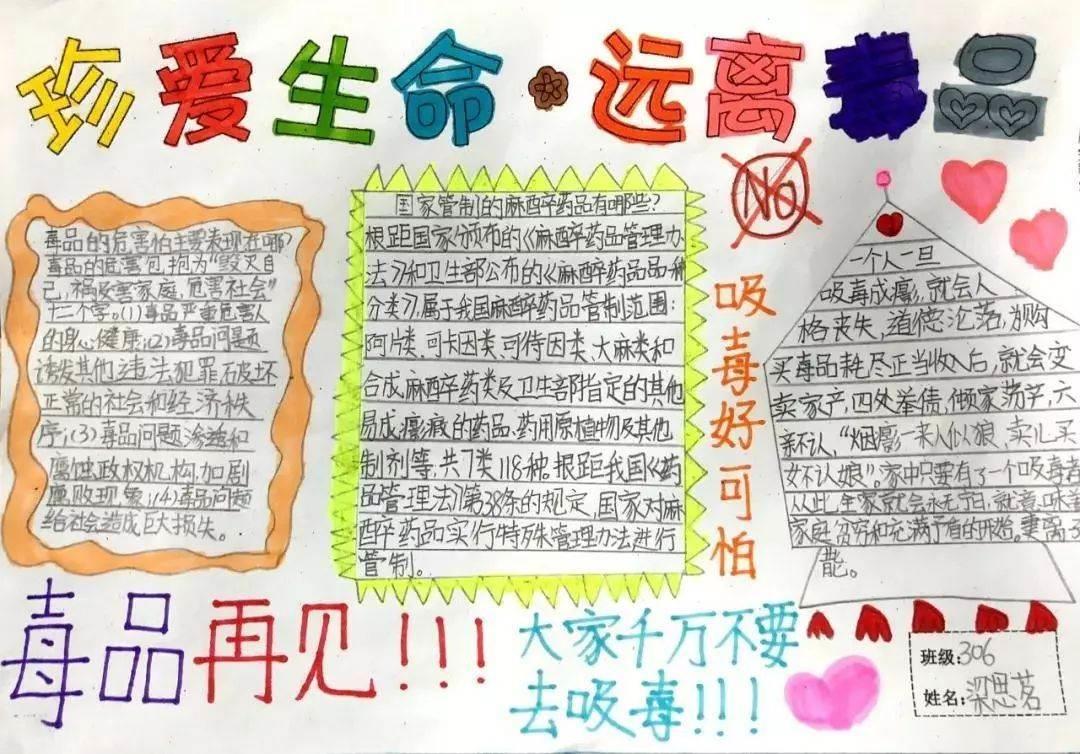 珍爱生命·远离毒品
毒品的危害怕主要表现在哪?
毒品的危害包,抱为“毁灭自
己,祸及害家庭,危害社会”
十二个字。(1)毒品严重危害人
的身心健康;(2)毒品问题
诱发其他违法犯罪破坏
正常的社会和经济秩
序;(3)毒品问题渗透和
腐蚀政权机构,加剧
腐败现象;(4)毒品问题
给社会造成巨大损失。
国家管制的麻醉药品有哪些?
根距国家颁布的《麻醉药品管理办
法》和卫生部公布的《麻醉药品品种
分类》,属于我国麻醉药品管制范围:
阿片类、可卡因类、可待因类、大麻类和
合成麻醉药类及卫生部指定的其他
易成瘾瘾的药品、药用原植物及其他
制剂等,共7类118种。根距我国《药
品管理法》第38条的规定,国家对麻
醉药品实行特殊管理办法进行
管制。
NO
吸毒好可怕
一个人一旦
吸毒成瘾,就会人
格丧失,道德沦落,为购
买毒品耗尽正当收入后,就会变
卖家产,四处举债,倾家荡产,六
亲不认,“烟瘾一来人似狼,卖儿买
女不认娘”。家中只要有了一个吸毒者
从此全家就会永无宁日,就意味着
家庭贫穷和充满矛盾的开始。妻离子
毒品再见!!!
大家千万不要
去吸毒!!!
班级:306
姓名:梁思茗